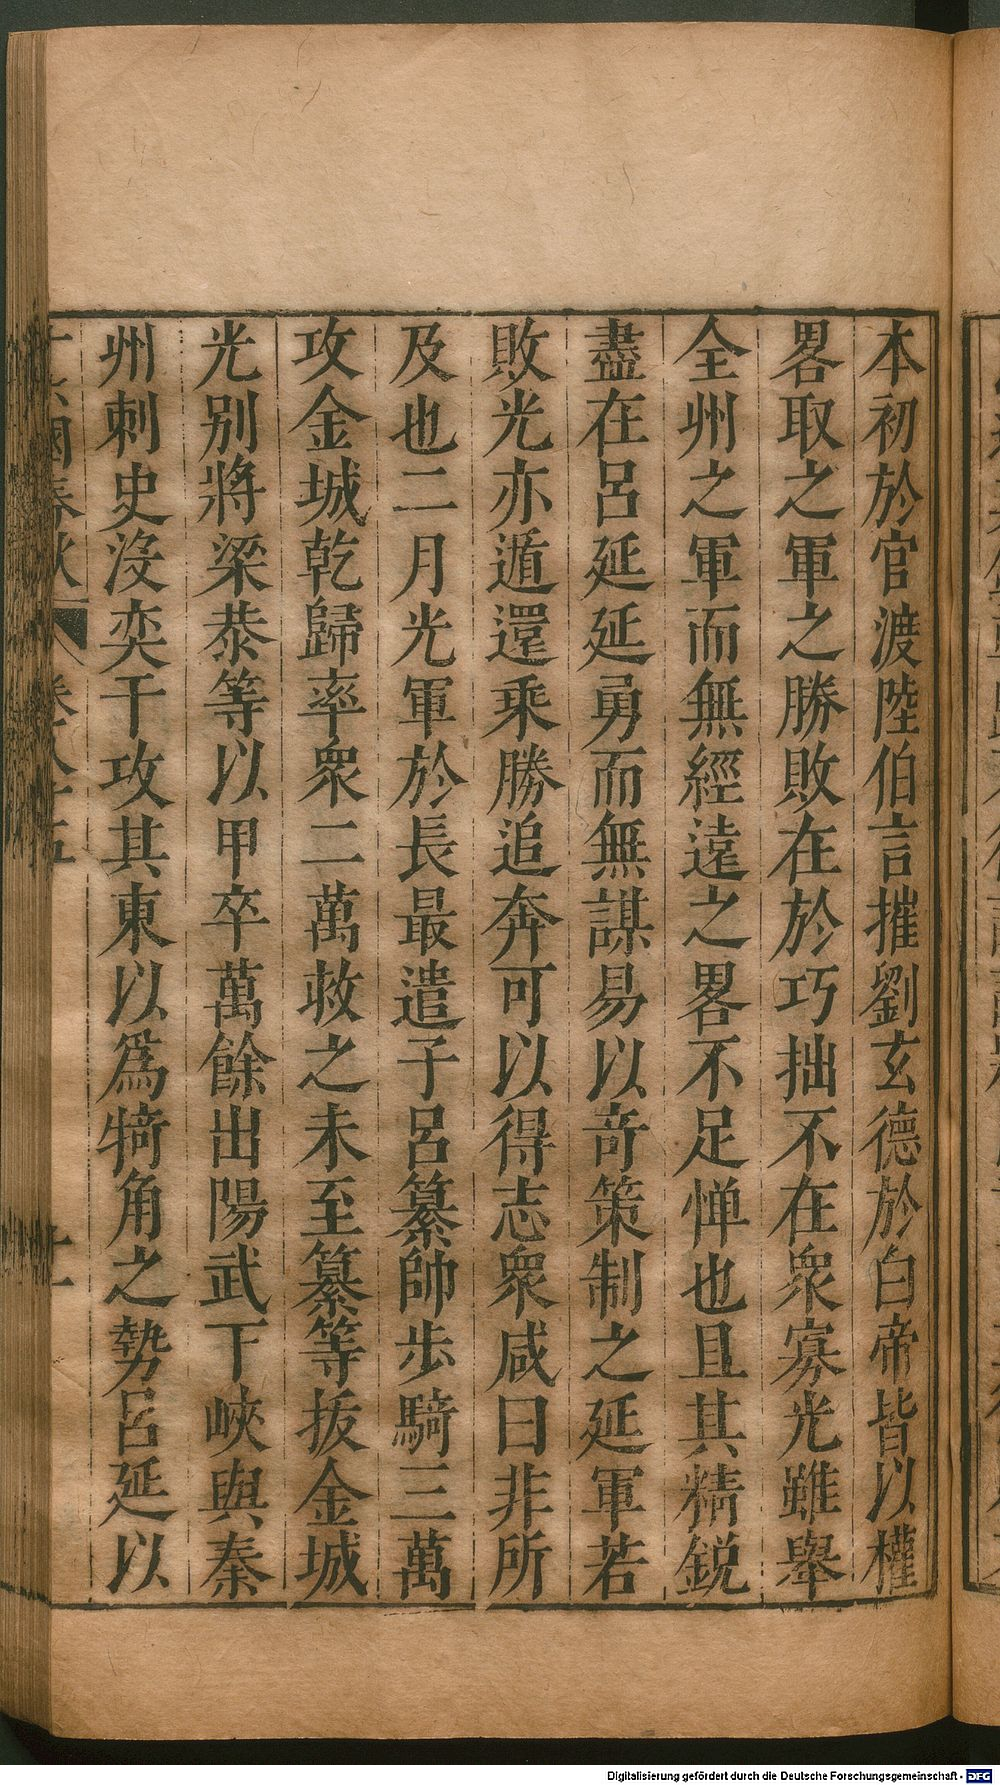 本初於官渡陸伯言摧劉玄德於白帝皆以權
畧取之軍之勝敗在於巧拙不在衆寡光雖舉
全州之軍而無經遠之畧不足憚也且其精鋭
盡在呂延延勇而無謀易以竒策制之延軍若
敗光亦遁還乘勝追奔可以得志衆咸曰非所
及也二月光軍於長最遣子呂纂帥歩騎三萬
攻金城乾歸率衆二萬救之未至纂等拔金城
光别將梁恭等以甲卒萬餘出陽武下峽與秦
州刺史沒奕干攻其東以爲犄角之勢呂延以
十六國春秋 卷八十五 十一
Digitalisierung gefördert durch die Deutsche Forschungsgemeinschaft - DFG